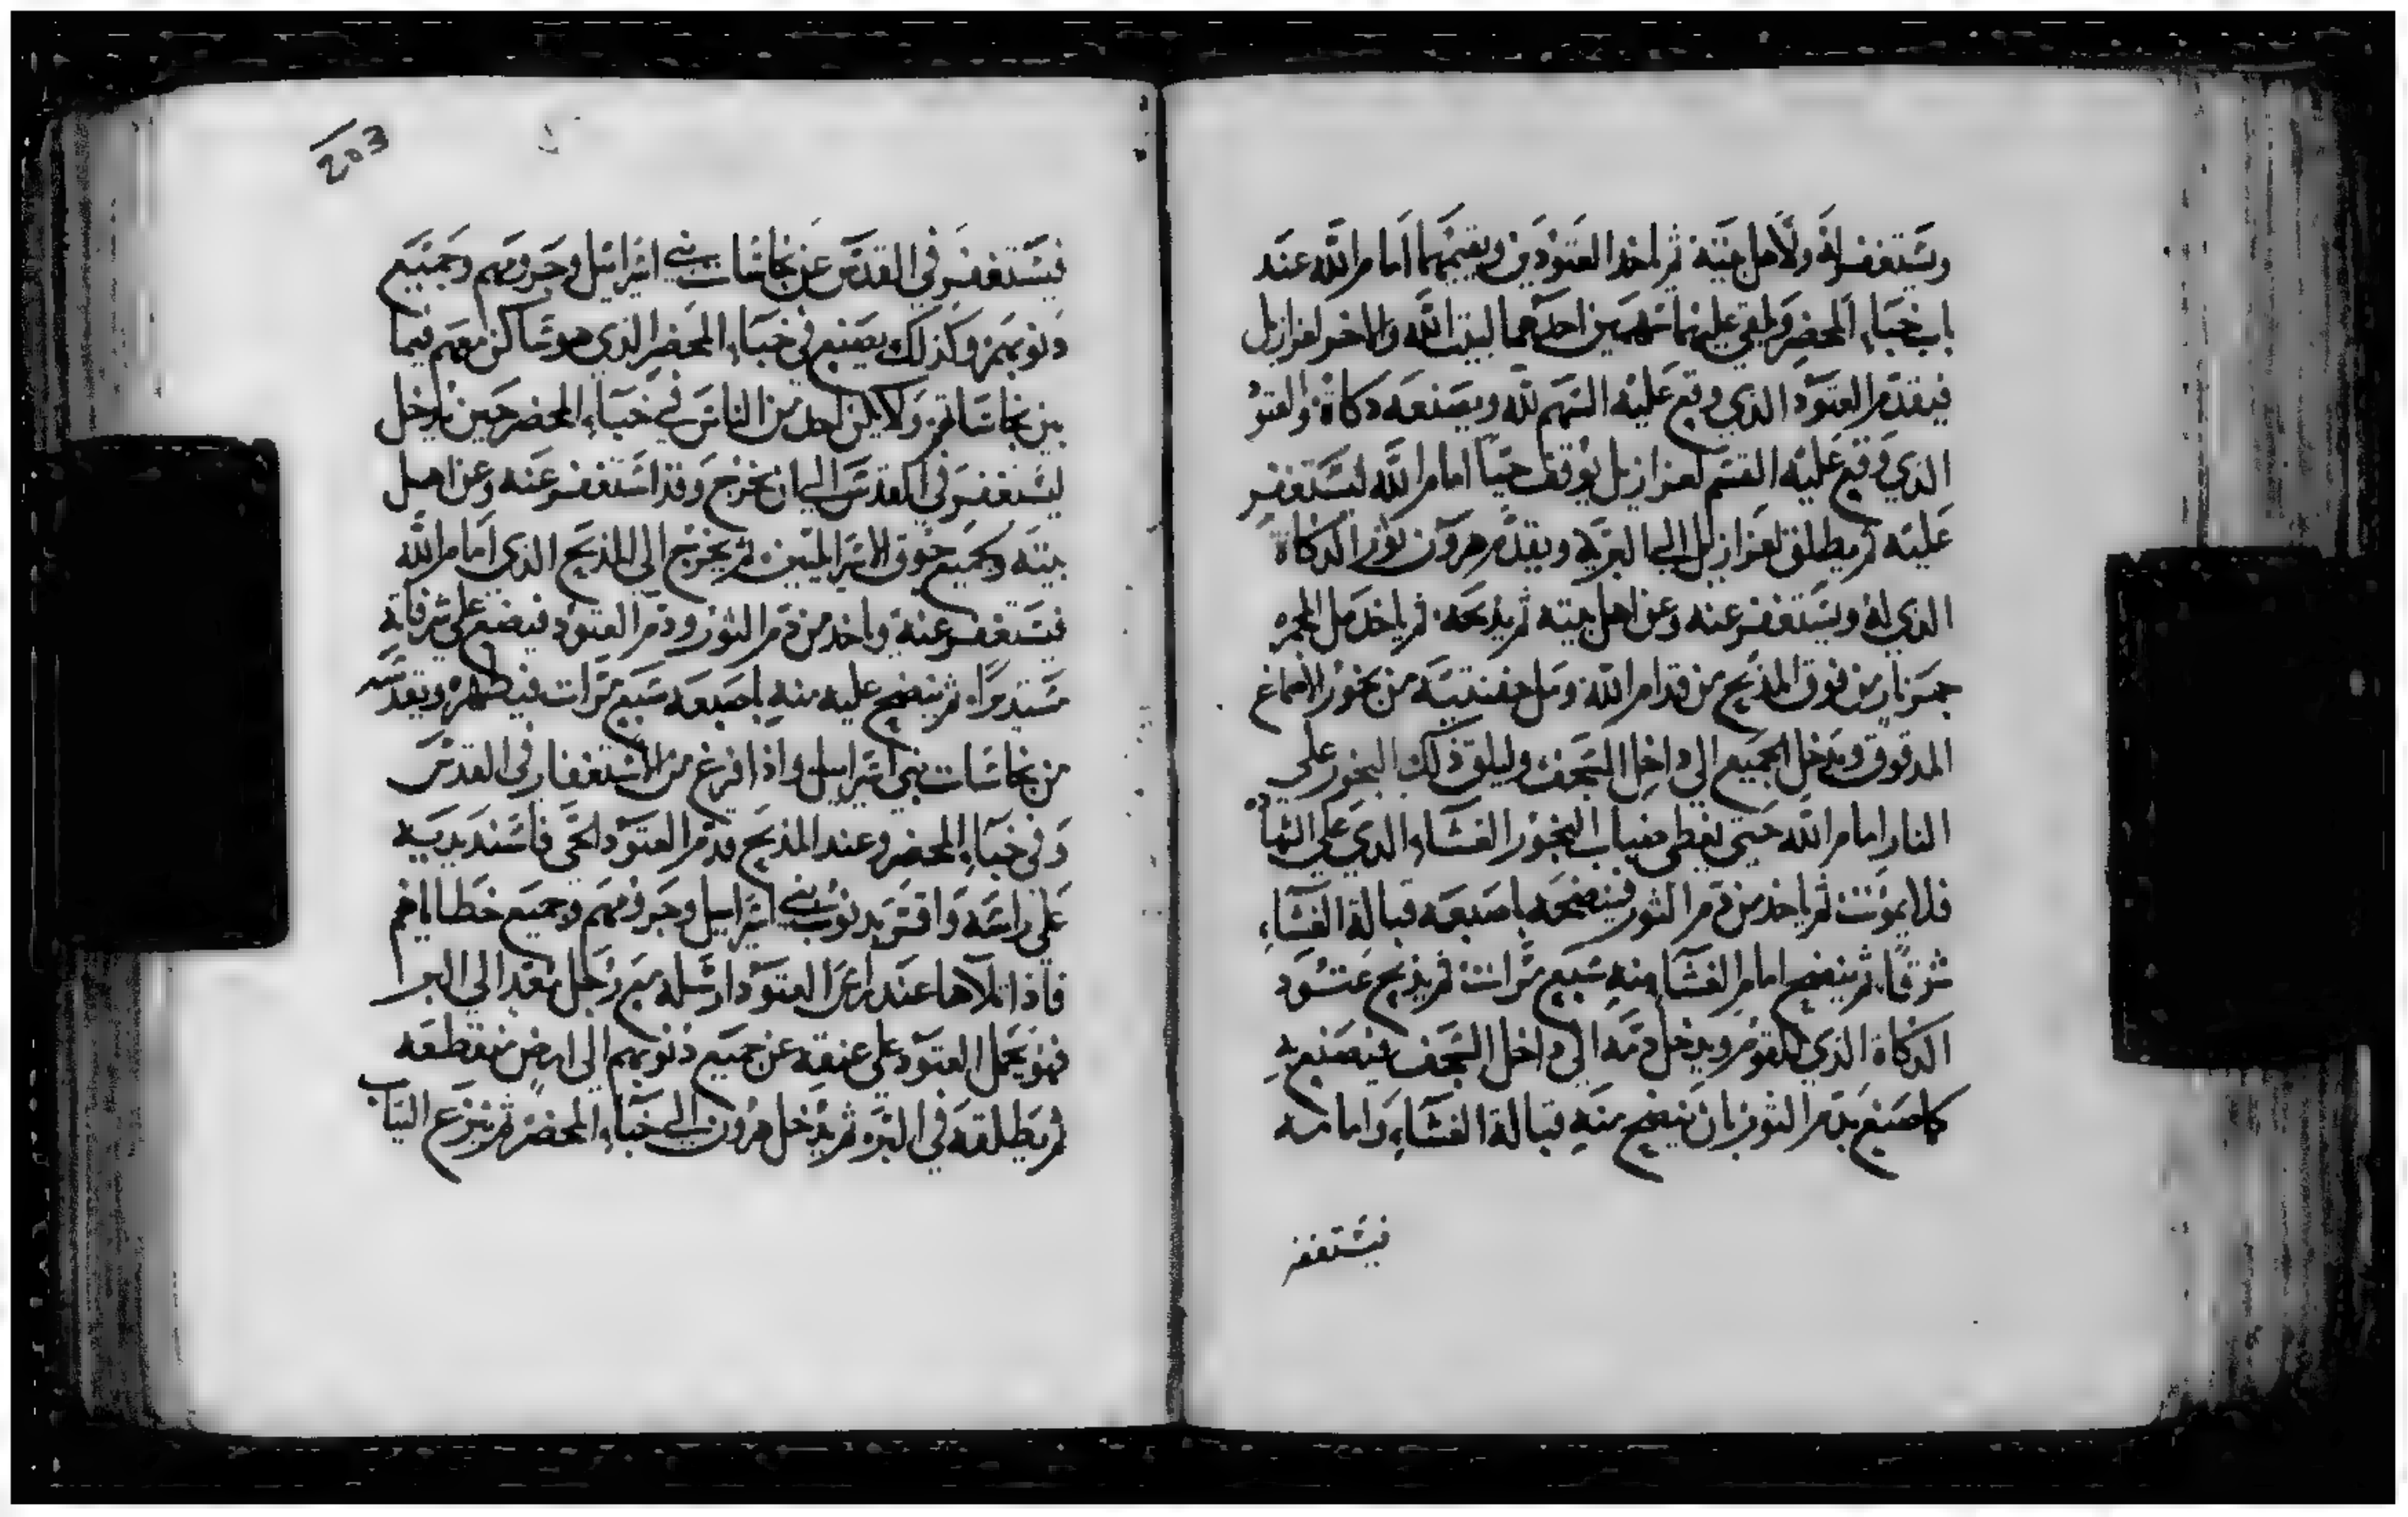 ويستغفر له ولاهل بيته ثم ياخد العتودين ويقيمهما امام الله عند
باب خباء المحضر ويلقي عليهما سهمين احدهما لبيت الله والاخر لعزازيل
فيقدم العتود الذي وقع عليه السهم لله ويصنعه دكاة والعتود
الذي وقع عليه القسم لعزازيل يوقف حيا امام الله ليستغفر
عليه ثم يطلق لعزازيل الى البرية ويقدم هرون ثور الدكاة
الذي له ويستغفر عنه وعن اهل بيته ثم يذبحه ثم ياخد مل المجمره
جمر نار من فوق المذبح من قدام الله ومل حفنتيه من بخور الاصماغ
المدقوق ويدخل الجميع الى داخل السجف وليلق ذلك البخور على
النار امام الله حتى يغطي ضباب البخور الغشاء الدي على الشهادة
فلا يموت ثم ياخد من دم الثور فينضحه باصبعه قبالة الغشاء
شرقا ثم ينضح امام الغشاء منه سبع مرات ثم يذبح عتود
الدكاة الذي للقوم ويدخل دمه الى داخل السجف فيصنع به
كما صنع بدم الثور بان ينضح منه قبالة الغشاء وامامه
فيستغفر
203
فيستغفر في القدس عن نجاسات بني اسرائيل وجرومهم وجميع
دنوبهم وكذلك يصنع في خباء المحضر الذي هو ساكن معهم فيما
بين نجاساتهم ولا يكن احد من الناس في خباء المحضر حين يدخل
ليستغفر في القدس الى ان يخرج وقد استغفر عنه وعن اهل
بيته وجميع جوق الاسراييليين ثم يخرج الى المذبح الذي امام الله
فيستغفر عنه وياخد من دم الثور ودم العتود فيضع على شرفاته
مستديرا ثم ينضح عليه منه باصبعه سبع مرات فيطهره ويقدسه
من نجاسات بني اسراييل واذا فرغ من الاستغفار في القدس
وفي خباء المحضر وعند المذبح قدم العتود الحي فاسند يديه
على راسه واقر بدنوب بني اسراييل وجرومهم وجميع خطاياهم
فاذا تلاها عند راس العتود ارسله مع رجل معد الى البر
فهو يحمل العتود على عنقه عن جميع ذنوبهم الى ارض منقطعه
ثم يطلقه في البر ثم يدخل هرون الى خباء المحضر ثم ينزع الثياب